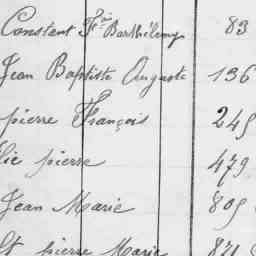 Constant Fois Barthélemy 83
Jean Baptiste Auguste 136
pierre François 245
lie pierre 479
Jean Marie 805
St pierre Marie 871